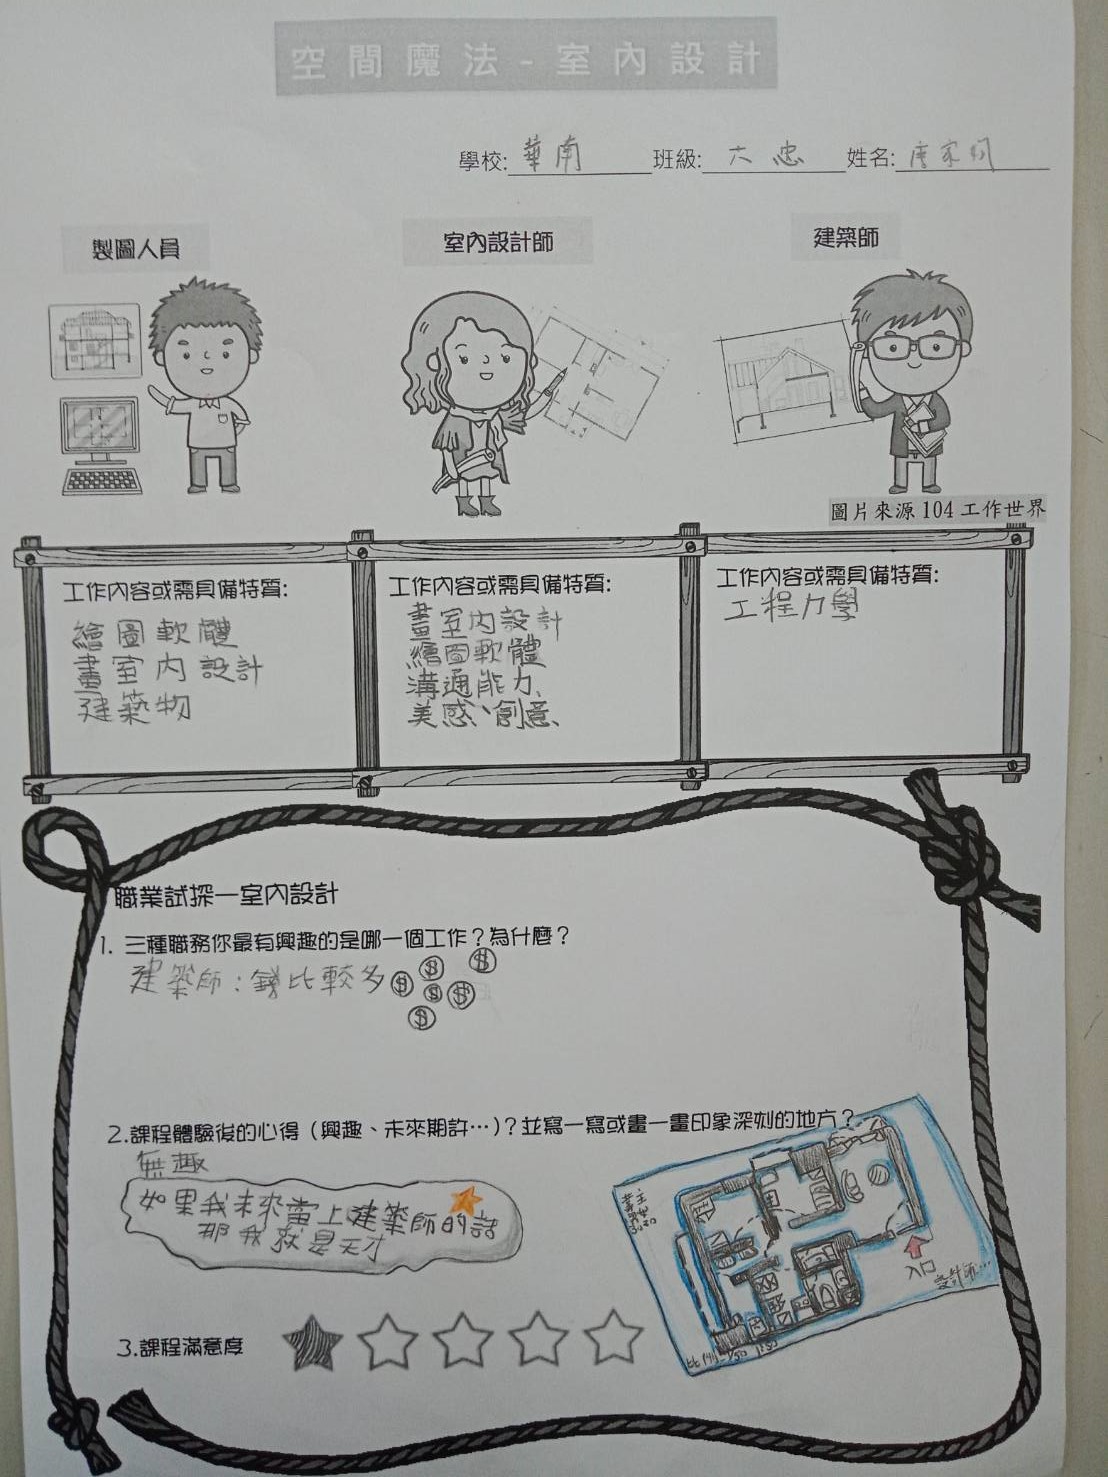 空間魔法-室內設計
學校:華南 班級:六忠 姓名:唐家
製圖人員 室內設計師 建築師
圖片來源 104 工作世界
工作內容或需具備特質:
繪圖軟體
畫室內設計
建築物
工作內容或需具備特質:
畫室內設計
繪圖軟體
溝通能力、
美感、創意、
工作內容或需具備特質:
工程力學
職業試探—室內設計
1. 三種職務你最有興趣的是哪一個工作?為什麼?
建築師:錢比較多
2.課程體驗後的心得(興趣、未來期許…)?並寫一寫或畫一畫印象深刻的地方?
無趣
如果我未來當上建築師的話
那我就是天才
入口
設計師…
3.課程滿意度